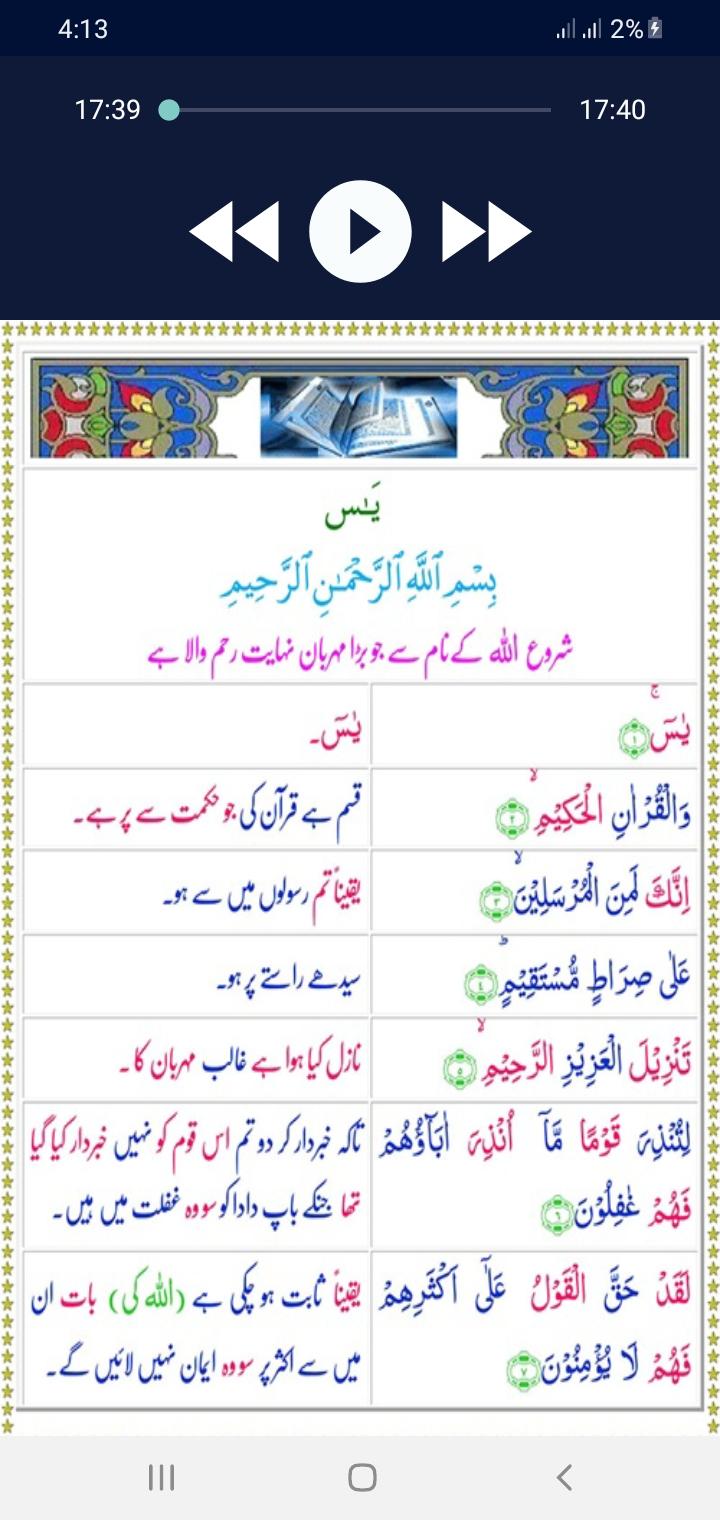 4:13 2%
17:39 17:40
يَـٰسٓ
بِسْمِ ٱللَّهِ ٱلرَّحْمَـٰنِ ٱلرَّحِيمِ
شروع اللہ کے نام سے جو بڑا مہربان نہایت رحم والا ہے
يٰسٓ ۚ ﴿١﴾
یٰسٓ۔
وَالْقُرْاٰنِ الْحَكِيْمِ ۙ ﴿٢﴾
قسم ہے قرآن کی جو حکمت سے پر ہے۔
اِنَّكَ لَمِنَ الْمُرْسَلِيْنَ ۙ ﴿٣﴾
یقیناً تم رسولوں میں سے ہو۔
عَلٰى صِرَاطٍ مُّسْتَقِيْمٍ ؕ ﴿٤﴾
سیدھے راستے پر ہو۔
تَنْزِيْلَ الْعَزِيْزِ الرَّحِيْمِ ۙ ﴿٥﴾
نازل کیا ہوا ہے غالب مہربان کا۔
لِتُنْذِرَ قَوْمًا مَّاۤ اُنْذِرَ اٰبَآؤُهُمْ
فَهُمْ غٰفِلُوْنَ ﴿٦﴾
تاکہ خبردار کر دو تم اس قوم کو نہیں خبردار کیا گیا
تھا جنکے باپ دادا کو سو وہ غفلت میں ہیں۔
لَقَدْ حَقَّ الْقَوْلُ عَلٰٓى اَكْثَرِهِمْ
فَهُمْ لَا يُؤْمِنُوْنَ ﴿٧﴾
یقیناً ثابت ہو چکی ہے (اللہ کی) بات ان
میں سے اکثر پر سو وہ ایمان نہیں لائیں گے۔